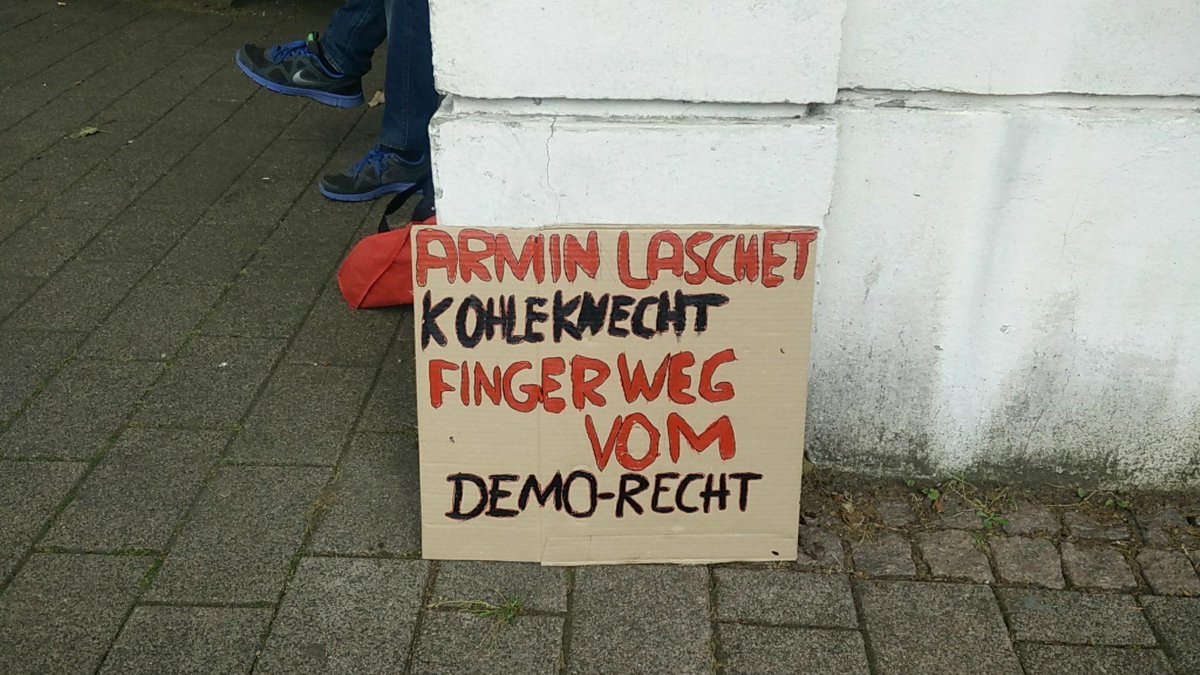 ARMIN LASCHET
KOHLEKNECHT
FINGER WEG
VOM
DEMO-RECHT